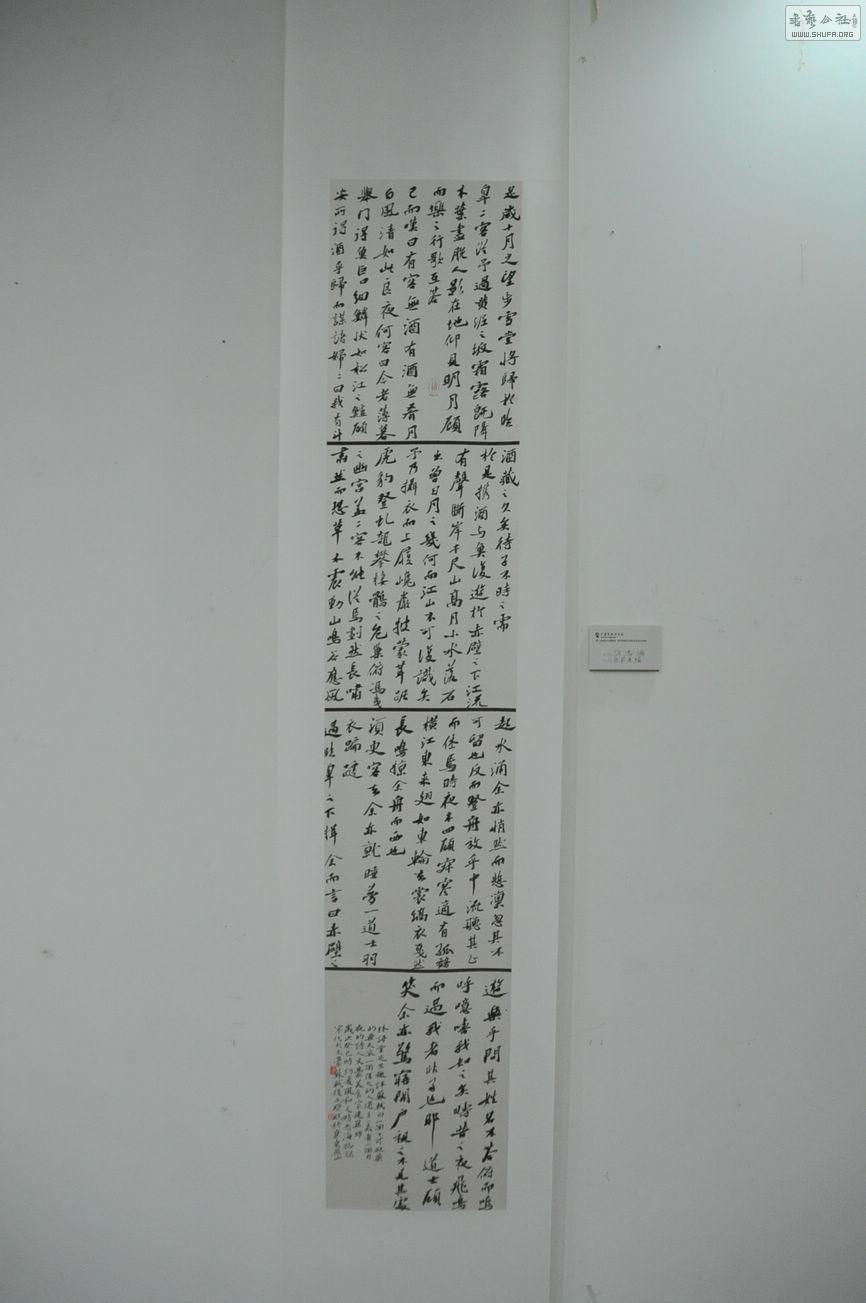 是歲十月之望步雪堂將歸於臨
皋二客從予過黃泥之坂霜露既降
木葉盡脫人影在地仰見明月顧
而樂之行歌互答
已而嘆曰有客無酒有酒無肴月
白風清如此良夜何客曰今者薄暮
舉網得魚巨口細鱗狀如松江之鱸顧
安所得酒乎歸而謀諸婦婦曰我有斗
酒藏之久矣待子不時之需
於是攜酒與魚復遊於赤壁之下江流
有聲斷岸千尺山高月小水落石
出曾日月之幾何而江山不可復識矣
予乃攝衣而上履巉巖披蒙茸踞
虎豹登虬龍攀棲鶻之危巢俯馮夷
之幽宮蓋二客不能從焉劃然長嘯
肅然而恐草木震動山鳴谷應風
起水涌余亦悄然而悲凜忽其不
可留也反而登舟放乎中流聽其止
而休焉時夜半四顧寂寥適有孤鶴
橫江東來翅如車輪玄裳縞衣戛然
長鳴掠余舟而西也
須臾客去余亦就睡夢一道士羽
衣蹁躚
過臨皋之下揖余而言曰赤壁之
遊樂乎問其姓名不答俯而鳴
呼噫嘻我知之矣疇昔之夜飛鳴
而過我者非子也耶道士顧
笑余亦驚寤開戶視之不見其處
書藝公社
WWW.SHUFA.ORG